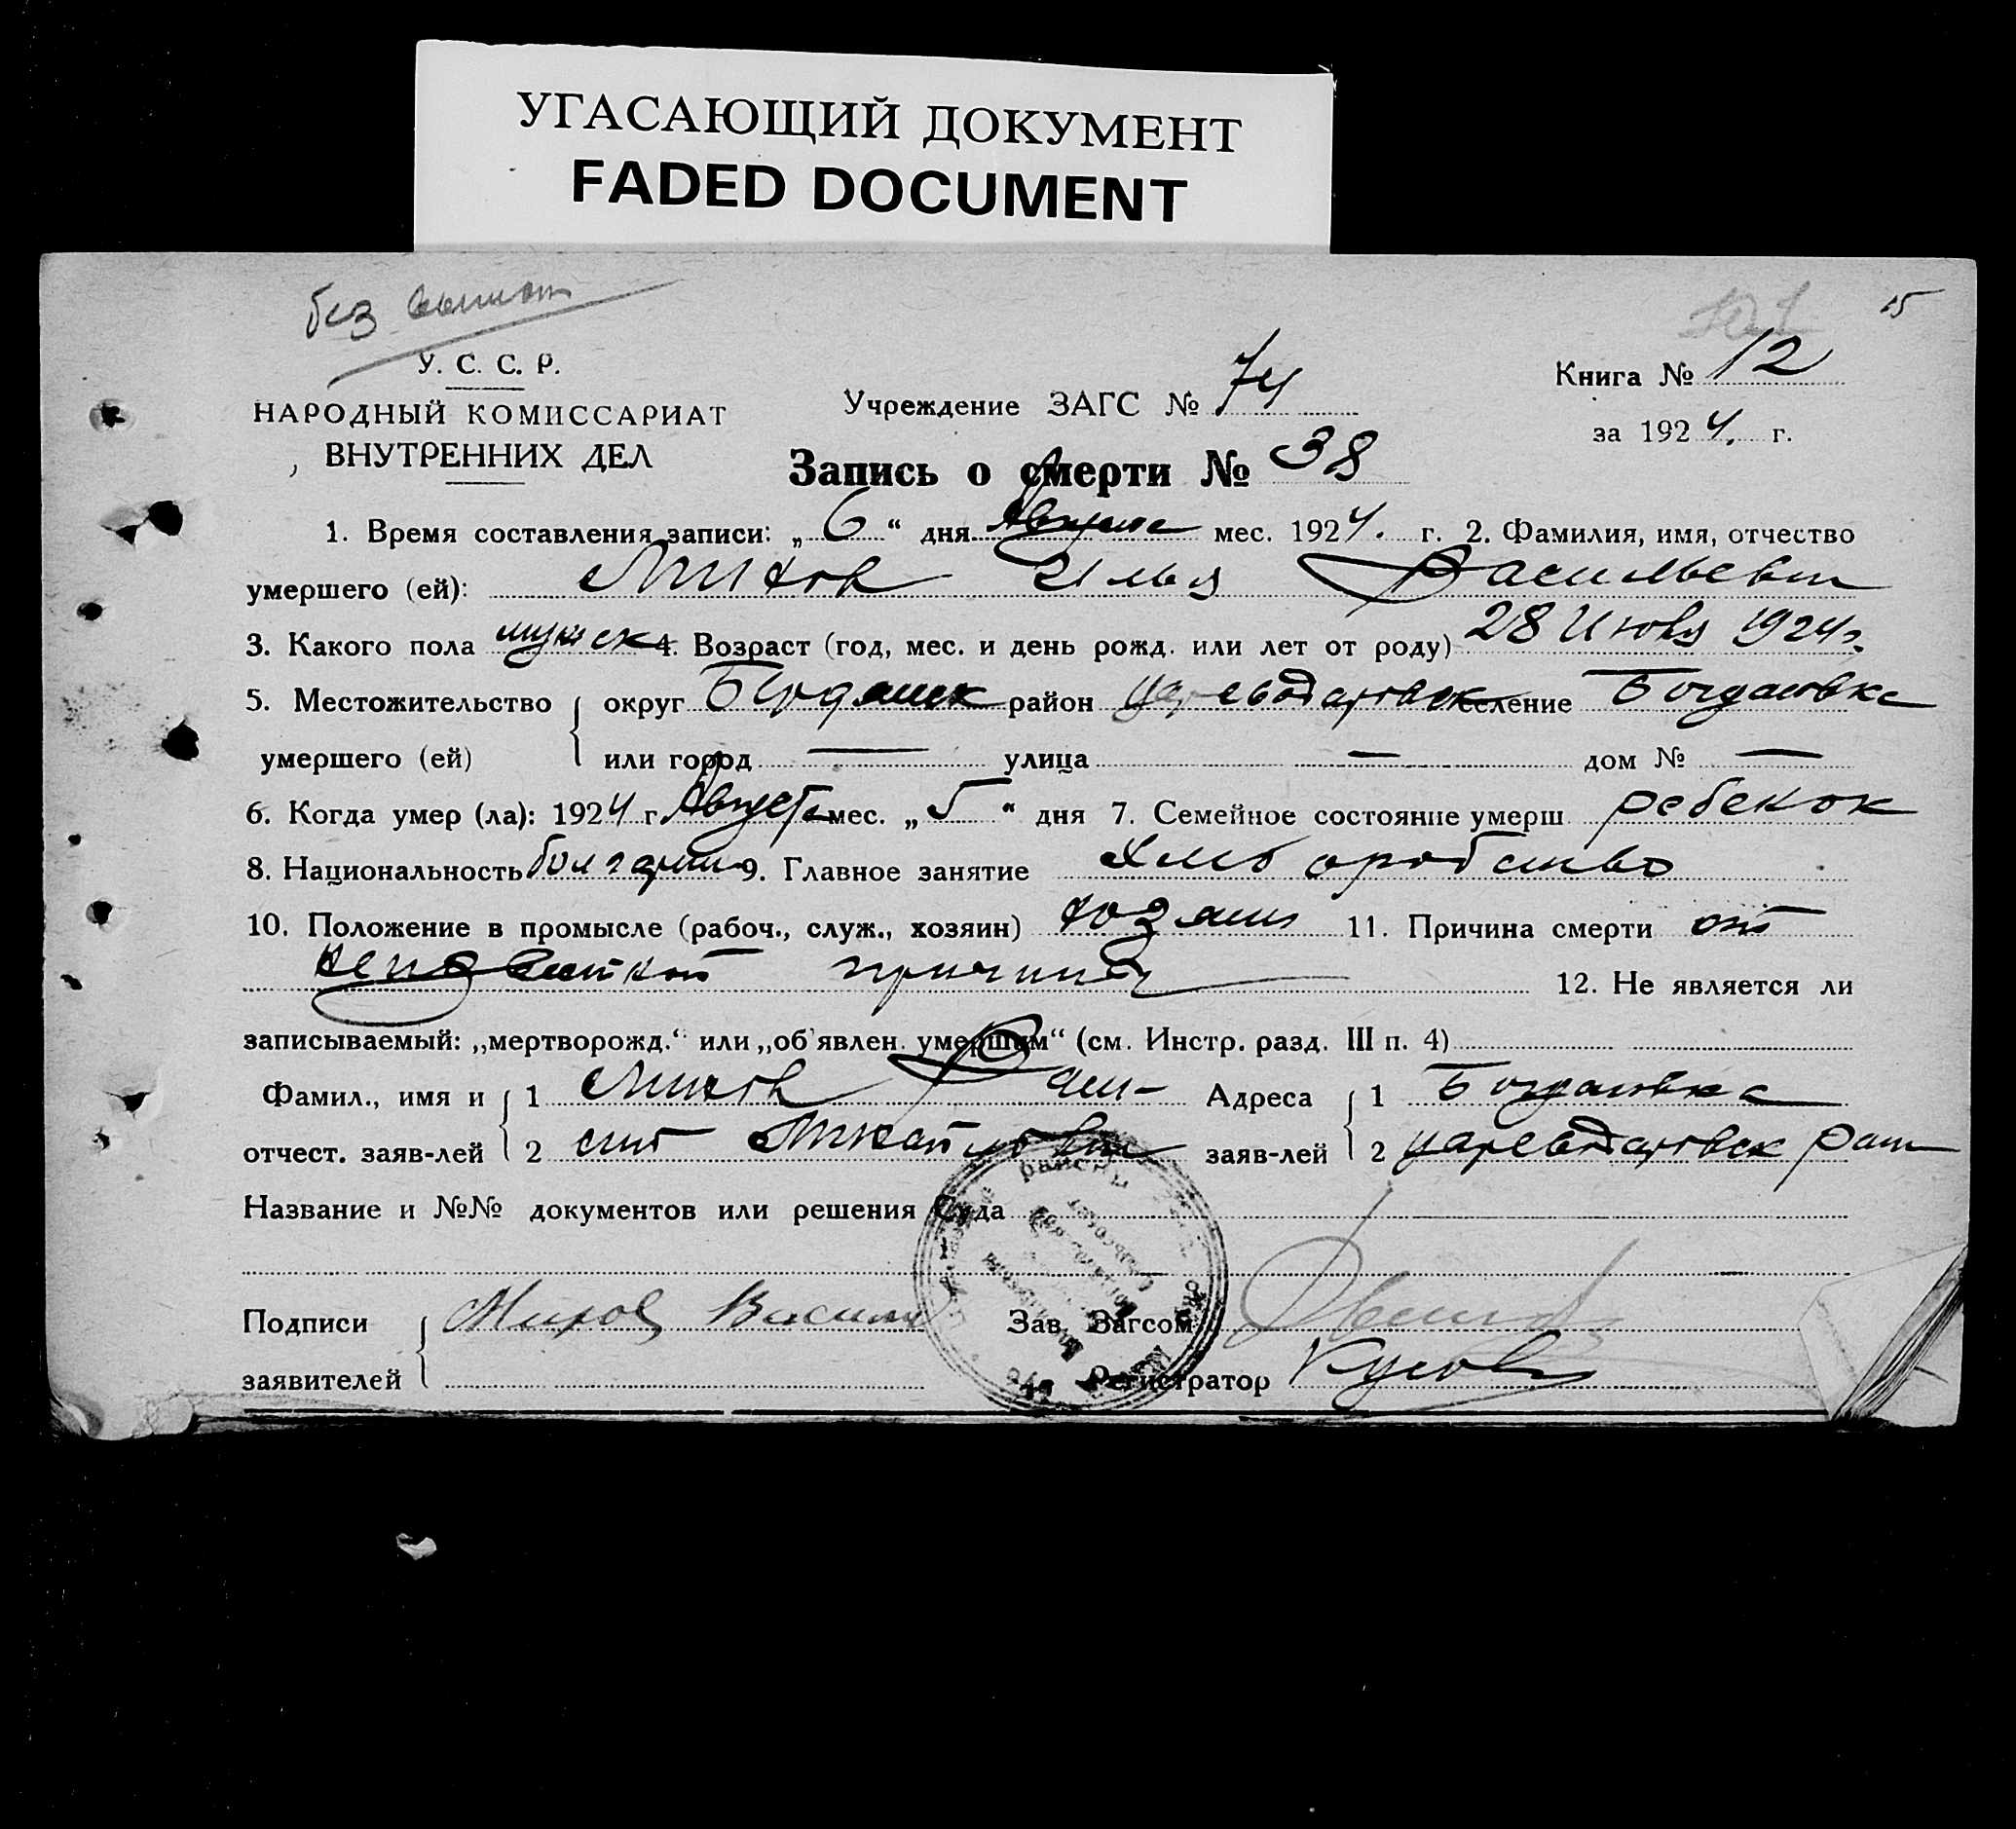 УГАСАЮЩИЙ ДОКУМЕНТ
FADED DOCUMENT
без 15
У. С. С. Р.
НАРОДНЫЙ КОМИССАРИАТ
ВНУТРЕННИХ ДЕЛ
Учреждение ЗАГС № 74
Книга № 12
за 1924. г.
Запись о смерти № 38
1. Время составления записи: „6“ дня Августа мес. 1924. г. 2. Фамилия, имя, отчество
умершего (ей): Михов Илья Васильевич
3. Какого пола мужск 4. Возраст (год, мес. и день рожд. или лет от роду) 28 Июля 1924 г.
5. Местожительство округ Бердянск район цареводаровск селение Богдановка
умершего (ей) или город — улица — дом № —
6. Когда умер (ла): 1924 г. Августа мес. „5“ дня 7. Семейное состояние умерш ребенок
8. Национальность болгарин 9. Главное занятие хлеборобство
10. Положение в промысле (рабоч., служ., хозяин) хозяин 11. Причина смерти от
неизвестной причины 12. Не является ли
записываемый: „мертворожд.“ или „об'явлен. умершим“ (см. Инстр. разд. III п. 4)
Фамил., имя и 1 Михов Васи- Адреса 1 Богдановка
отчест. заяв-лей 2 лий Михайлович заяв-лей 2 цареводаровск рай
Название и №№ документов или решения Суда
Подписи Михов Василий Зав. Загсом
заявителей Регистратор